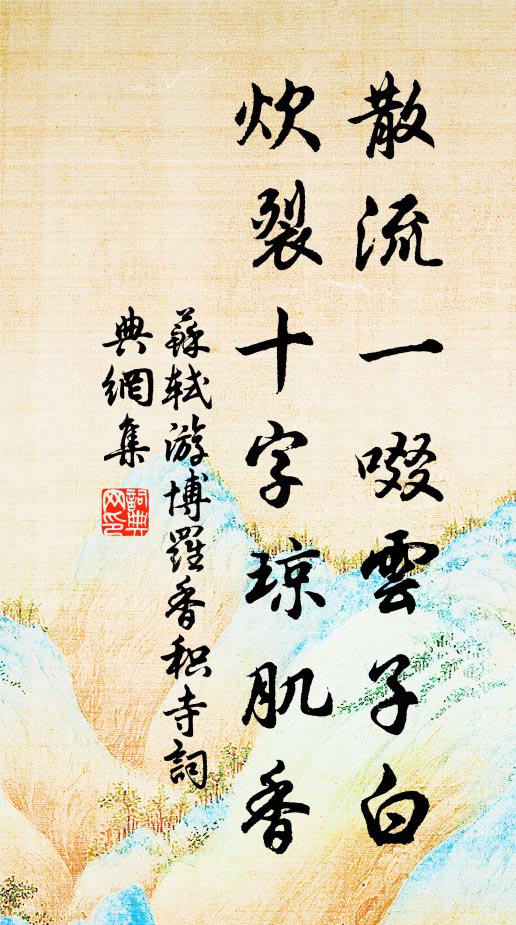 散流一啜雲子白
炊裂十字琼肌香
蘇軾游博羅香积寺詞
典網集
詞典
网印